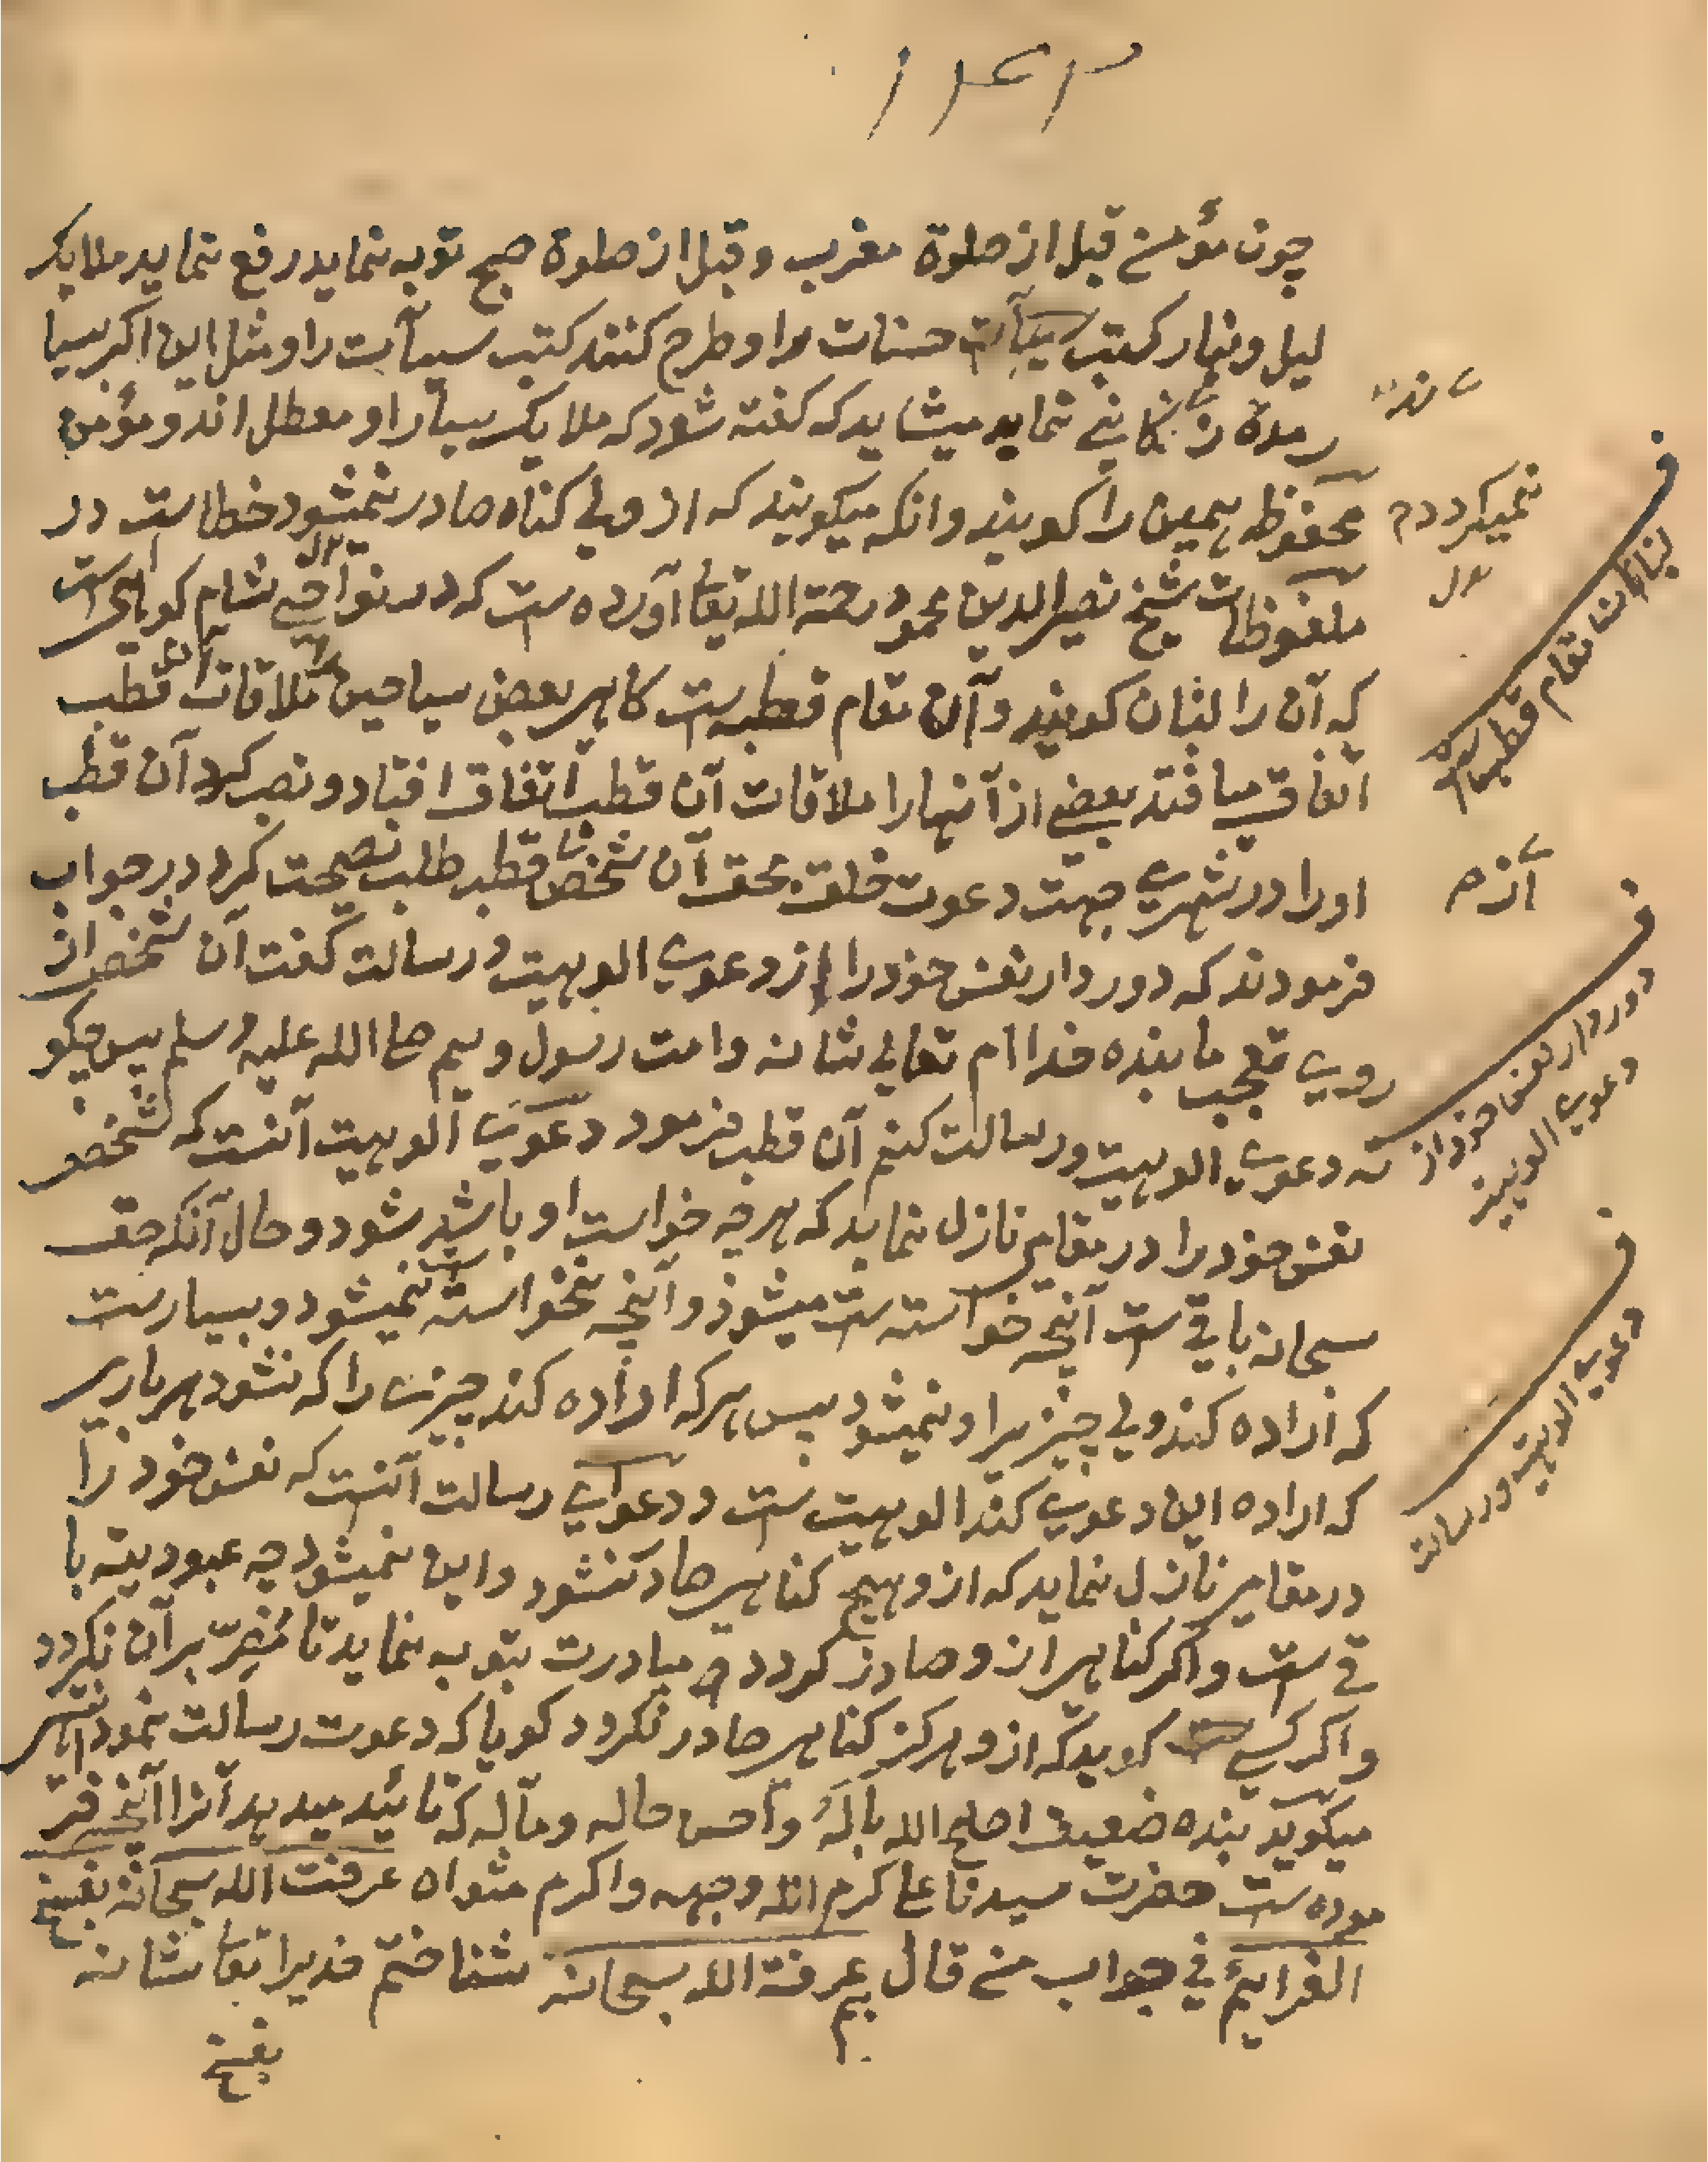 ۱۴۲
چون مؤمن قبل از صلوة مغرب و قبل از صلوة صبح توبه نماید رفع نماید ملایک
لیل و نهار کتب حسنات او طرح کنند کتب سیآت را و مثل این اگر سیا
نماید میشاید که گفته شود که ملایک سیآ را و معطل اند و مؤمن
محفوظ همین را گویند و آنکه میگویند که از ولی گناه صادر نمیشود خطاست در
ملفوظات شیخ نصیر الدین محمود رحمة الله تعا آورده ست که در نواحی شام کوهی است
که آن را لبنان گویند و آن مقام قطب ست گاهی بعض سیاحین ملاقات قطب
اتفاق میافتد بعضی از آنها را ملاقات آن قطب اتفاق افتاد و نصب کرد آن قطب
او را در شهری جهت دعوت خلق بحق آن شخص از قطب طلب نصیحت کرد در جواب
فرمودند که دور دار نفس خود را از دعوی الوهیت و رسالت گفت آن شخص از
روی تعجب ما بنده خدا ام تعالی شانه و امت رسول ویم صلی الله علیه و سلم پس چگو
نه دعوی الوهیت و رسالت کنم آن قطب فرمود دعوی الوهیت آنست که شخص
نفس خود را در مقامی نازل نماید که هر چه خواست او باشد شود و حال آنکه حق
سبحانه باقی ست آنچه خواسته ست میشود و آنچه نخواسته نمیشود و بسیارست
که اراده کند ولی چیزیرا و نمیشود پس هر که اراده کند چیزی را که نشود هر باری
که اراده این دعوی کند الوهیت ست و دعوای رسالت آنست که نفس خود را
در مقامی نازل نماید که از و هیچ گناهی صادر نشود و این نمیشود چه عبودیته با
قی ست و اگر گناهی از و صادر گردد مبادرت بتوبه نماید تا مُصِرّ بر آن نگردد
و اگر کسی گوید که از و هرگز گناهی صادر نگردد گویا که دعوت رسالت نمود انتهی
میگوید بنده ضعیف اصلح الله باله و احسن حاله و مآله که تائید میدهد آنرا آنچه فر
موده ست حضرت سیدنا علی کرم الله وجهه و اکرم مثواه عرفت الله سبحانه بفسخ
العزائم فی جواب من قال بم عرفت الله سبحانه شناختم خدیرا تعا شانه
بفسخ
نمیگردد م
لبنان مقام قطب است
دور دار نفس خود از
دعوی الوهیت
دعوی الوهیت و رسالت